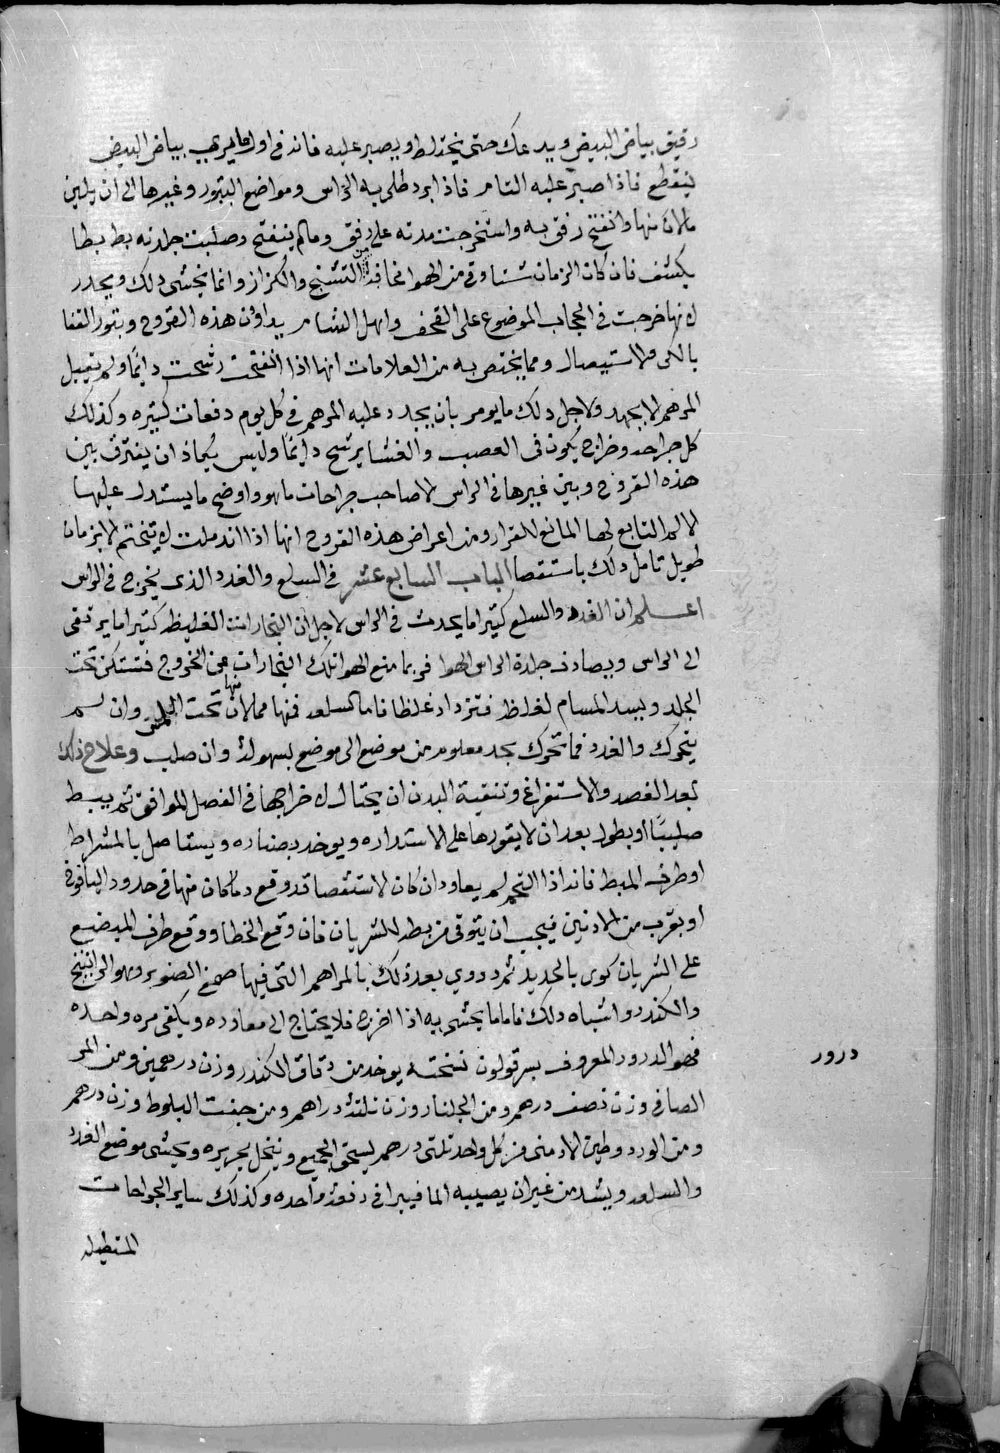 رقيق بياض البيض ويدعك حتى يختلط ويصبر عليه فانه في اول ما يربي بياض البيض
ينقطع فاذا صبر عليه التام فاذا برد طلي به الراس ومواضع البثور وغيرها الى ان يلين
مالان منها وانفتح رفق به واستخرجت مدته على رفق ومالم ينفتح وصلبت جلدته بط بطا
يكشف فان كان الزمان شتا وقي من الهوا مخافة من التشنج والكزاز وانما يخشى ذلك ويحدر
لانها خرجت في الحجاب الموضوع على القحف واهل الشام يداوون هذه القروح وبثور القفا
بالكي والاستيصال ومما يختص به من العلامات انها اذا انفتحت رشحت دائما ولم تقبل
المرهم الا بجهد ولاجل ذلك ما يومر بان يجدد عليه المرهم في كل يوم دفعات كثيره وكذلك
كل جراحه وخراج يكون في العصب والغشا يرشح دائما وليس يكاد ان يفترق بين
هذه القروح وبين غيرها في الراس الا صاحب جراحات ماهر واوضح ما يستدل عليها
الالم التابع لها المانع للقرار ومن اعراض هذه القروح انها اذا اندملت لا تختم الا بزمان
طويل تامل ذلك باستقصا الباب السابع عشر في السلع والغدد الذي يخرج في الراس
اعلم ان الغدد والسلع كثيرا ما يحدث في الراس لاجل ان البخارات الغليظه كثيرا ما يرتقى
الى الراس ويصادف جلدة الراس الهوا فربما منع الهوا تلك البخارات من الخروج فتستكن تحت
الجلد ويسد المسام لغلظ فتزداد غلظا فاما السلعه فمنها مما لان منها تحت اللمس وان لم
يتحرك والغدد فما تحرك بجد معلوم من موضع الى موضع بسهوله وان صلب وعلاج ذلك
بعد الفصد والاستفراغ وتنقية البدن ان يحتال لاخراجها في الفصل الموافق ثم يبط
صليبيا او بطول بعد ان لا يقورها على الاستداره ويوخد بصناره ويستاصل بالمشراط
او طرف المبط فانه اذا التحم لم يعاود ان كان الاستقصا قد وقع وما كان منها في حدود اليافوخ
او بقرب من الاذنين فيجب ان يتوقى من بطه للشريان فان وقع الخطا ووقع طرف المبضع
على الشريان كوى بالحديد ثم دووي بعد ذلك بالمراهم التي فيها صمغ الصنوبر وهو الراتينج
والكندر واشباه ذلك فاما ما يحشى به اذا اخرج فلا يحتاج الى معاوده ويكفي مره واحده
فهو الدرور المعروف بسرقولون نسخته يوخد من دقاق الكندر وزن درهمين ومن المر
الصافي وزن نصف درهم ومن الجلنار وزن ثلثة دراهم ومن جفت البلوط وزن درهم
ومن الورد وطين الارمني من كل واحد ثلثي درهم يسحق الجميع وينخل بحريره ويحشى موضع الغدد
والسلعه ويشد من غير ان يصيبه الما فيبرا في دفعه واحده وكذلك ساير الجراحات
المستطيله
درور